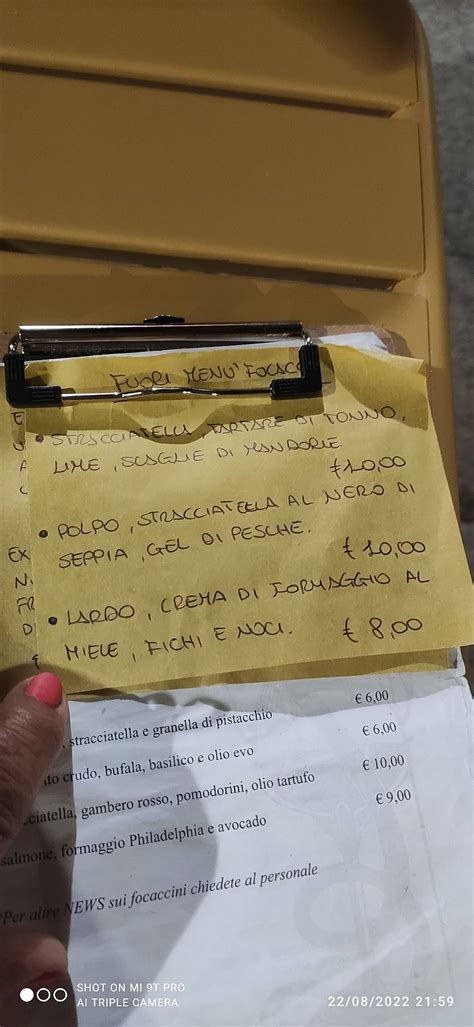 FUORI MENU' FOCAC
• STRACCIATELLA, TARTARE DI TONNO,
LIME, SCAGLIE DI MANDORLE.
€10,00
• POLPO, STRACCIATELLA AL NERO DI
SEPPIA, GEL DI PESCHE.
€ 10,00
• LARDO, CREMA DI FORMAGGIO AL
MIELE, FICHI E NOCI. € 8,00
, stracciatella e granella di pistacchio € 6,00
crudo, bufala, basilico e olio evo € 6,00
ciatella, gambero rosso, pomodorini, olio tartufo € 10,00
salmone, formaggio Philadelphia e avocado € 9,00
*Per altre NEWS sui focaccini chiedete al personale
SHOT ON MI 9T PRO
AI TRIPLE CAMERA
22/08/2022 21:59